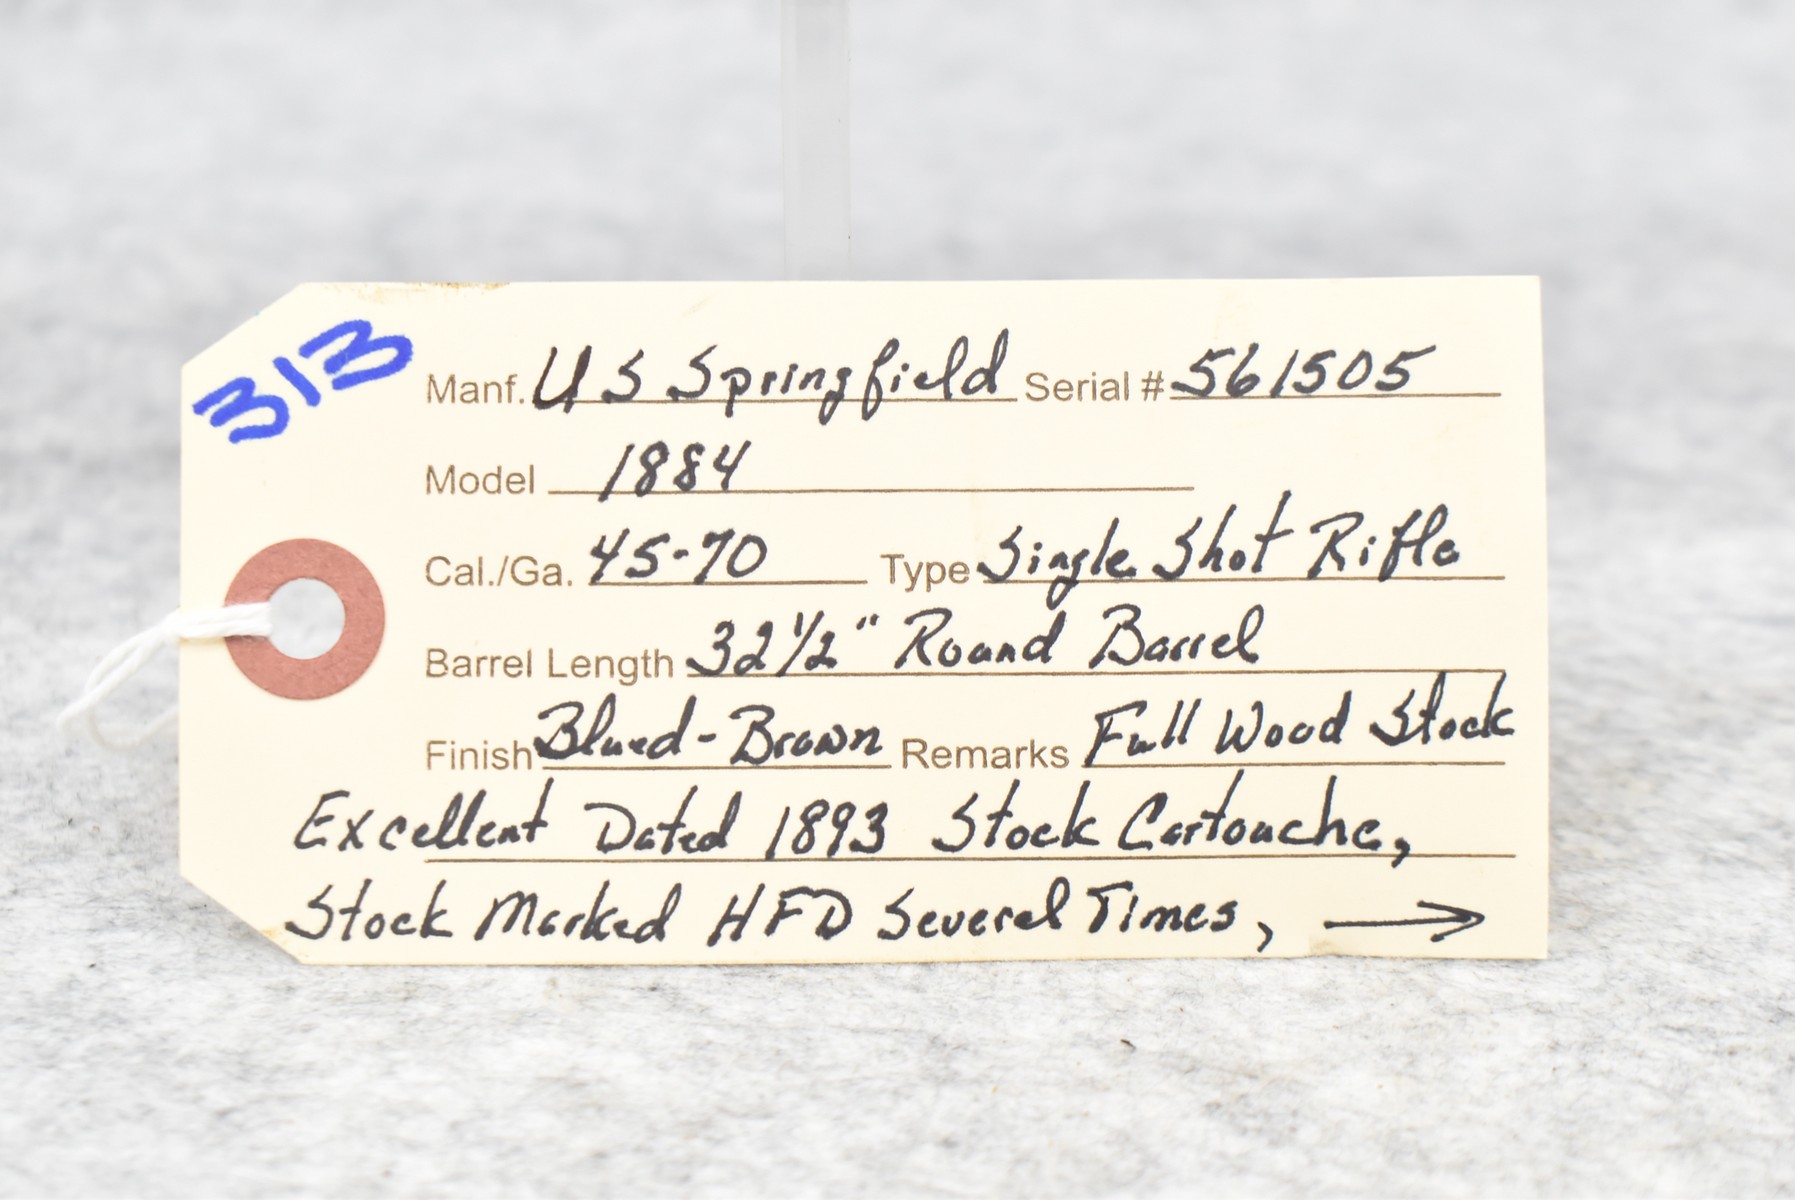 313
Manf. US Springfield Serial # 561505
Model 1884
Cal./Ga. 45-70 Type Single Shot Rifle
Barrel Length 32 1/2" Round Barrel
Finish Blued-Brown Remarks Full Wood Stock
Excellent Dated 1893 Stock Cartouche,
Stock Marked HFD Several Times, →